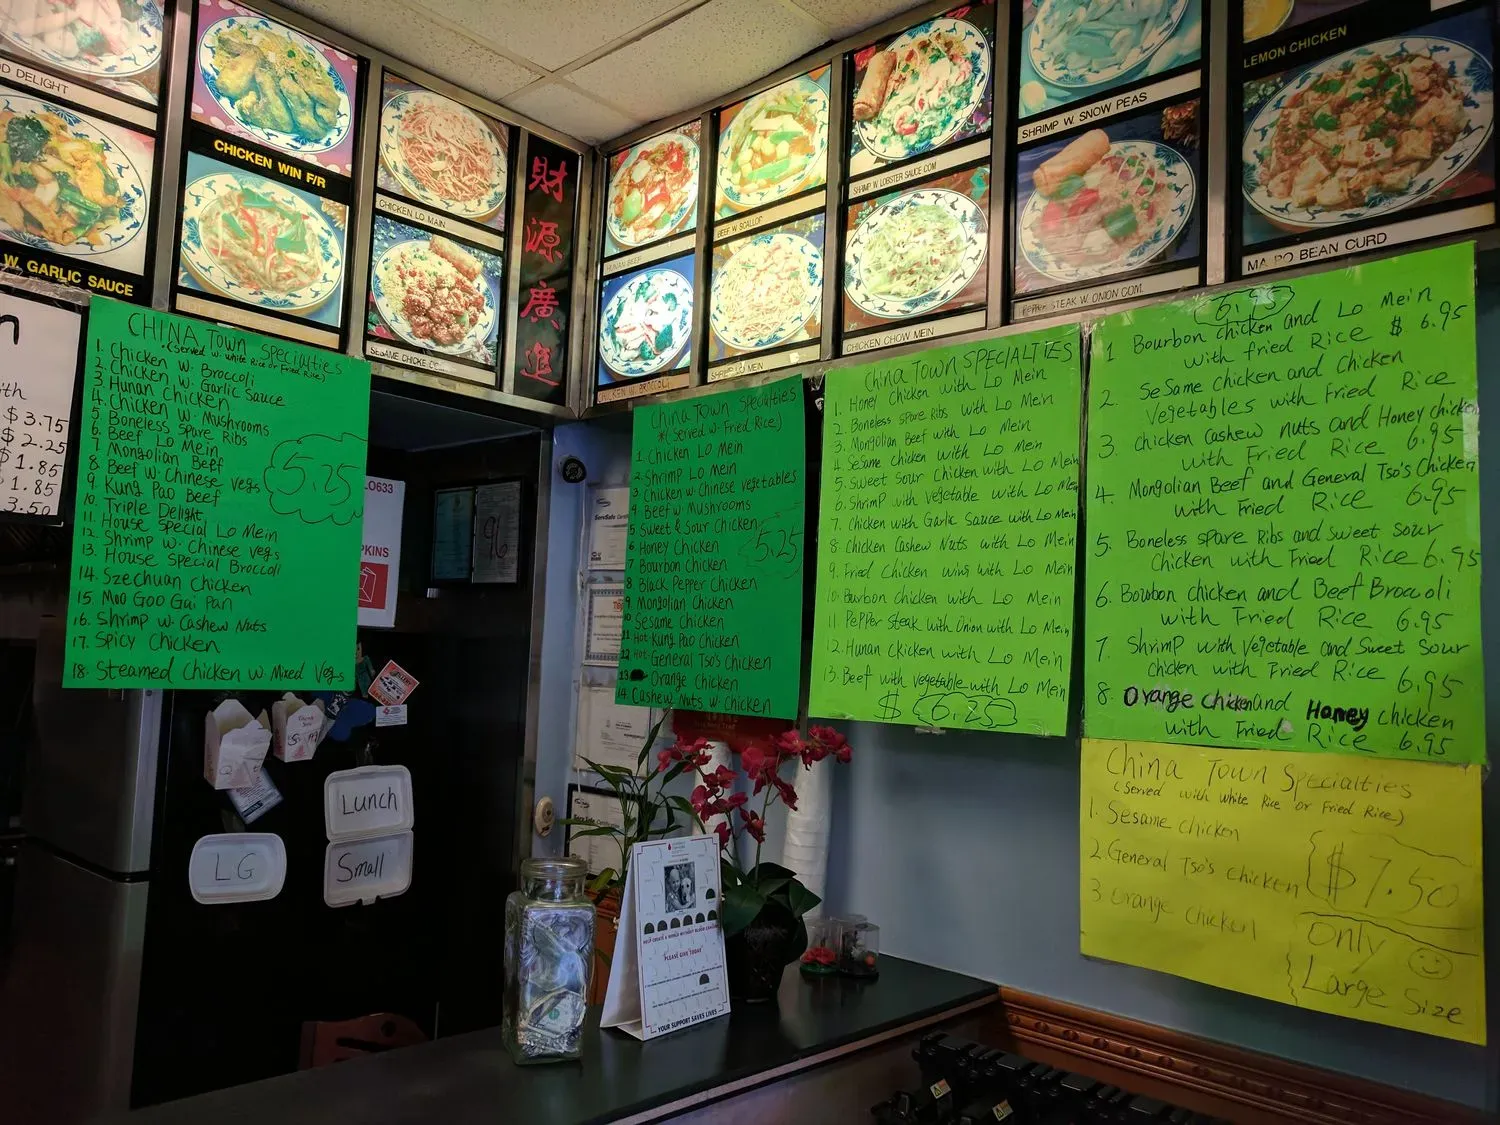 D DELIGHT
W. GARLIC SAUCE
CHICKEN WIN F/R
CHICKEN LO MAIN
SESAME CHICKE
財
源
廣
進
HUNAN BEEF
CHICKEN W. BROCCOLI
BEEF W. SCALLOP
SHRIMP LO MEIN
SHRIMP W. LOBSTER SAUCE COM
CHICKEN CHOW MEIN
SHRIMP W. SNOW PEAS
STEAK W. ONION COM.
LEMON CHICKEN
MA PO BEAN CURD
n
ith
$3.75
$2.25
$1.85
1.85
3.50
CHINA Town Specialties
*(Served w. white Rice or Fried Rice)
1. Chicken w. Broccoli
2. Chicken w. Garlic Sauce
3. Hunan Chicken
4. Chicken w. Mushrooms
5. Boneless Spare Ribs
6. Beef Lo Mein
7. Mongolian Beff
8. Beef w. Chinese Vegs
9. Kung Pao Beef
10. Triple Delight
11. House Special Lo Mein
12. Shrimp w. Chinese Vegs
13. House Special Broccoli
14. Szechuan Chicken
15. Moo Goo Gai Pan
16. Shrimp w. Cashew Nuts
17. Spicy Chicken
18. Steamed Chicken w. Mixed Vegs
5.25
LO633
PKINS
96
ServSafe
China Town Specialties
*(Served w. Fried Rice)
1. Chicken Lo Mein
2. Shrimp Lo Mein
3. Chicken w. Chinese Vegetables
4. Beef w. Mushrooms
5 Sweet & Sour Chicken
6 Honey Chicken
7 Bourbon Chicken
8. Black Pepper Chicken
9. Mongolian Chicken
10. Sesame Chicken
11 Hot. Kung Pao Chicken
12 Hot. General Tso's Chicken
13 Orange Chicken
14. Cashew Nuts w. Chicken
5.25
China Town SPECIALTIES
1. Honey Chicken with Lo Mein
2. Boneless Spare Ribs with Lo Mein
3. Mongolian Beef with Lo Mein
4. Sesame chicken with Lo Mein
5. Sweet Sour Chicken with Lo Mein
6. Shrimp with vegetable with Lo Mein
7. Chicken with Garlic Sauce with Lo Mein
8. Chicken Cashew Nuts with Lo Mein
9. Fried Chicken wing with Lo Mein
10. Bourbon chicken with Lo Mein
11 Pepper Steak with Onion with Lo Mein
12. Hunan Chicken with Lo Mein
13. Beef with vegetable with Lo Mein
$ 6.25
6.95
1 Bourbon Chicken and Lo Mein
with fried Rice $ 6.95
2. SeSame chicken and Chicken
Vegetables with Fried Rice
3. chicken Cashew nuts and Honey chicken
with Fried Rice 6.95
4. Mongolian Beef and General Tso's Chicken
with Fried Rice 6.95
5. Boneless spare Ribs and sweet sour
chicken with Fried Rice 6.95
6. Bourbon chicken and Beef Broccoli
with Fried Rice 6.95
7. Shrimp with vegetable and Sweet Sour
chicken with Fried Rice 6.95
8. Orange chicken and Honey chicken
with Fried Rice 6.95
China Town Specialties
(Served with white Rice or Fried Rice)
1. Sesame chicken
2. General Tso's chicken
3 orange chicken
$7.50
only
Large Size
Lunch
LG
Small
ServSafe
PLEASE GIVE TODAY
YOUR SUPPORT SAVES LIVES